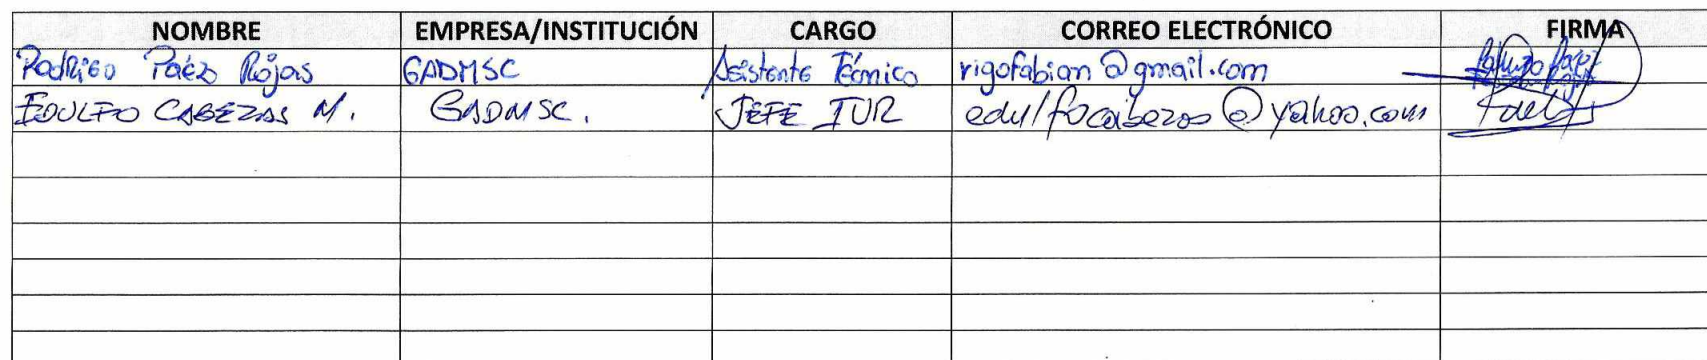 NOMBRE EMPRESA/INSTITUCIÓN CARGO CORREO ELECTRÓNICO FIRMA
Rodrigo Paéz Rojas GADMSC Asistente Técnico rigofabian@gmail.com
EDULFO CABEZAS M. GADMSC. JEFE TUR edulfocabezas@yahoo.com